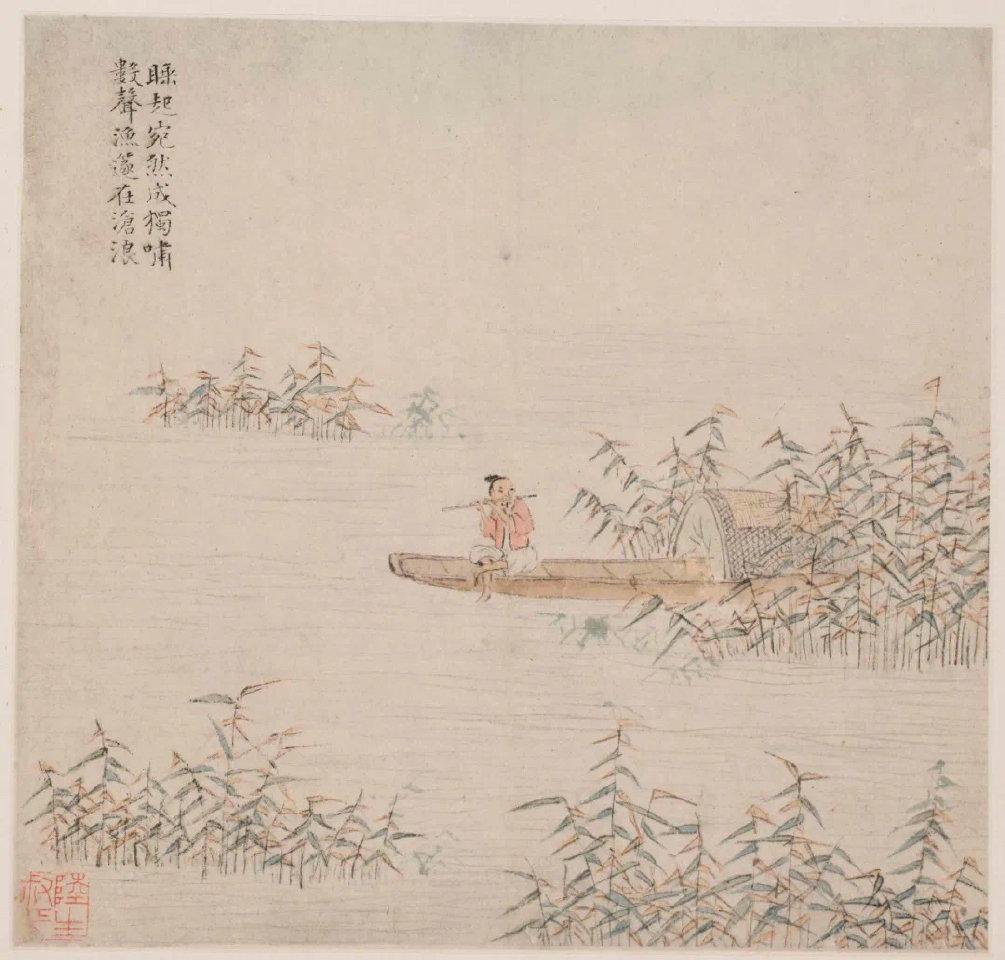 睡起宛然成獨嘯
數聲漁篴在滄浪
陸生
叔